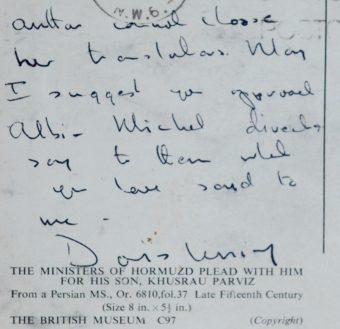 N.W.6.
author cannot choose
her translators. May
I suggest you approach
Albin Michel directly
say to them what
you have said to
me -
Doris Lessing
THE MINISTERS OF HORMUZD PLEAD WITH HIM
FOR HIS SON, KHUSRAU PARVIZ
From a Persian MS., Or. 6810, fol.37 Late Fifteenth Century
(Size 8 in. × 5½ in.)
THE BRITISH MUSEUM C97 (Copyright)